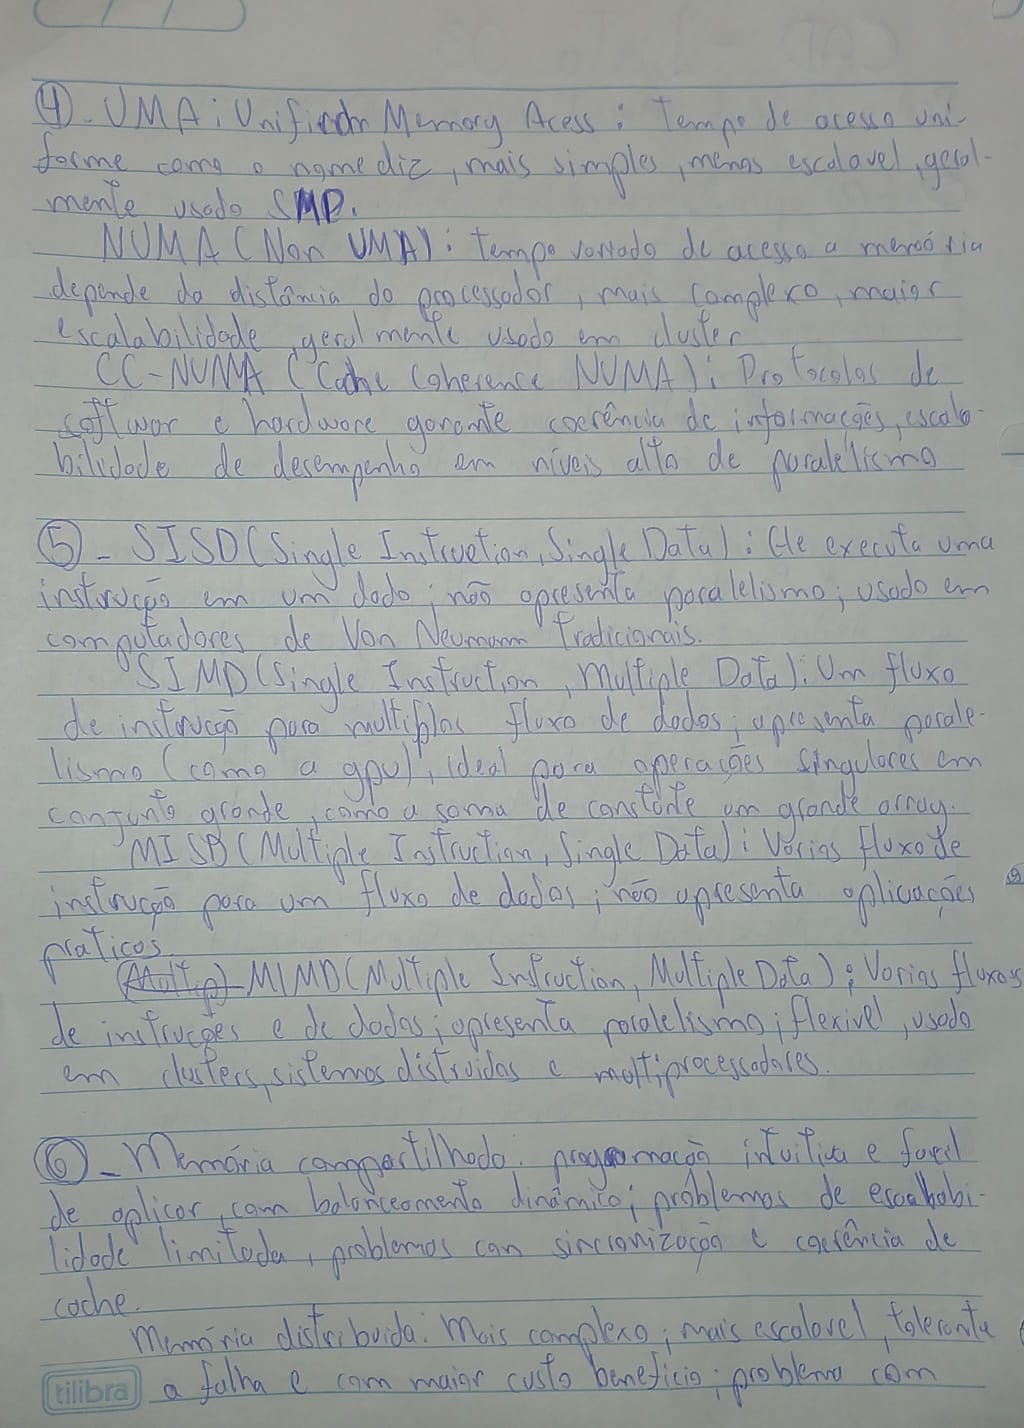 ④. UMA: Unifiedm Memory Acess: Tempo de acesso uni-
forme como o nome diz, mais simples, menos escalavel, geral-
mente usado SMP.
NUMA (Non UMA): tempo variado de acesso a memória
depende da distância do processador, mais complexo, maior
escalabilidade, geralmente usado em cluster
CC-NUMA (Cache Coherence NUMA): Protocolos de
softwar e hardware garante coerência de informações, escala-
bilidade de desempenho em níveis alto de paralelismo
⑤ - SISD (Single Instruction, Single Data): Ele executa uma
instrução em um dado; não apresenta paralelismo; usado em
computadores de Von Neumann tradicionais.
SIMD (Single Instruction, Multiple Data): Um fluxo
de instrução para multiplos fluxo de dados; apresenta parale-
lismo (como a gpu), ideal para operações singulares em
conjunto grande, como a soma de constante em grande array.
MISD (Multiple Instruction, Single Data): Vários fluxo de
instrução para um fluxo de dados; não apresenta aplicações
praticas.
(Multip) MIMD (Multiple Instruction, Multiple Data): Varios fluxos
de instruções e de dados; apresenta paralelismo; flexivel, usado
em clusters, sistemas distruidos e multiprocessadores.
⑥ - Memória compartilhada: programação intuitiva e facil
de aplicar, com balanceamento dinâmico; problemas de
lidade limitada, problemas con sincronização e coerência de
cache.
Memória distribuida: Mais complexo; mais escalavel, tolerante
a falha e com maior custo beneficio; problema com
tilibra